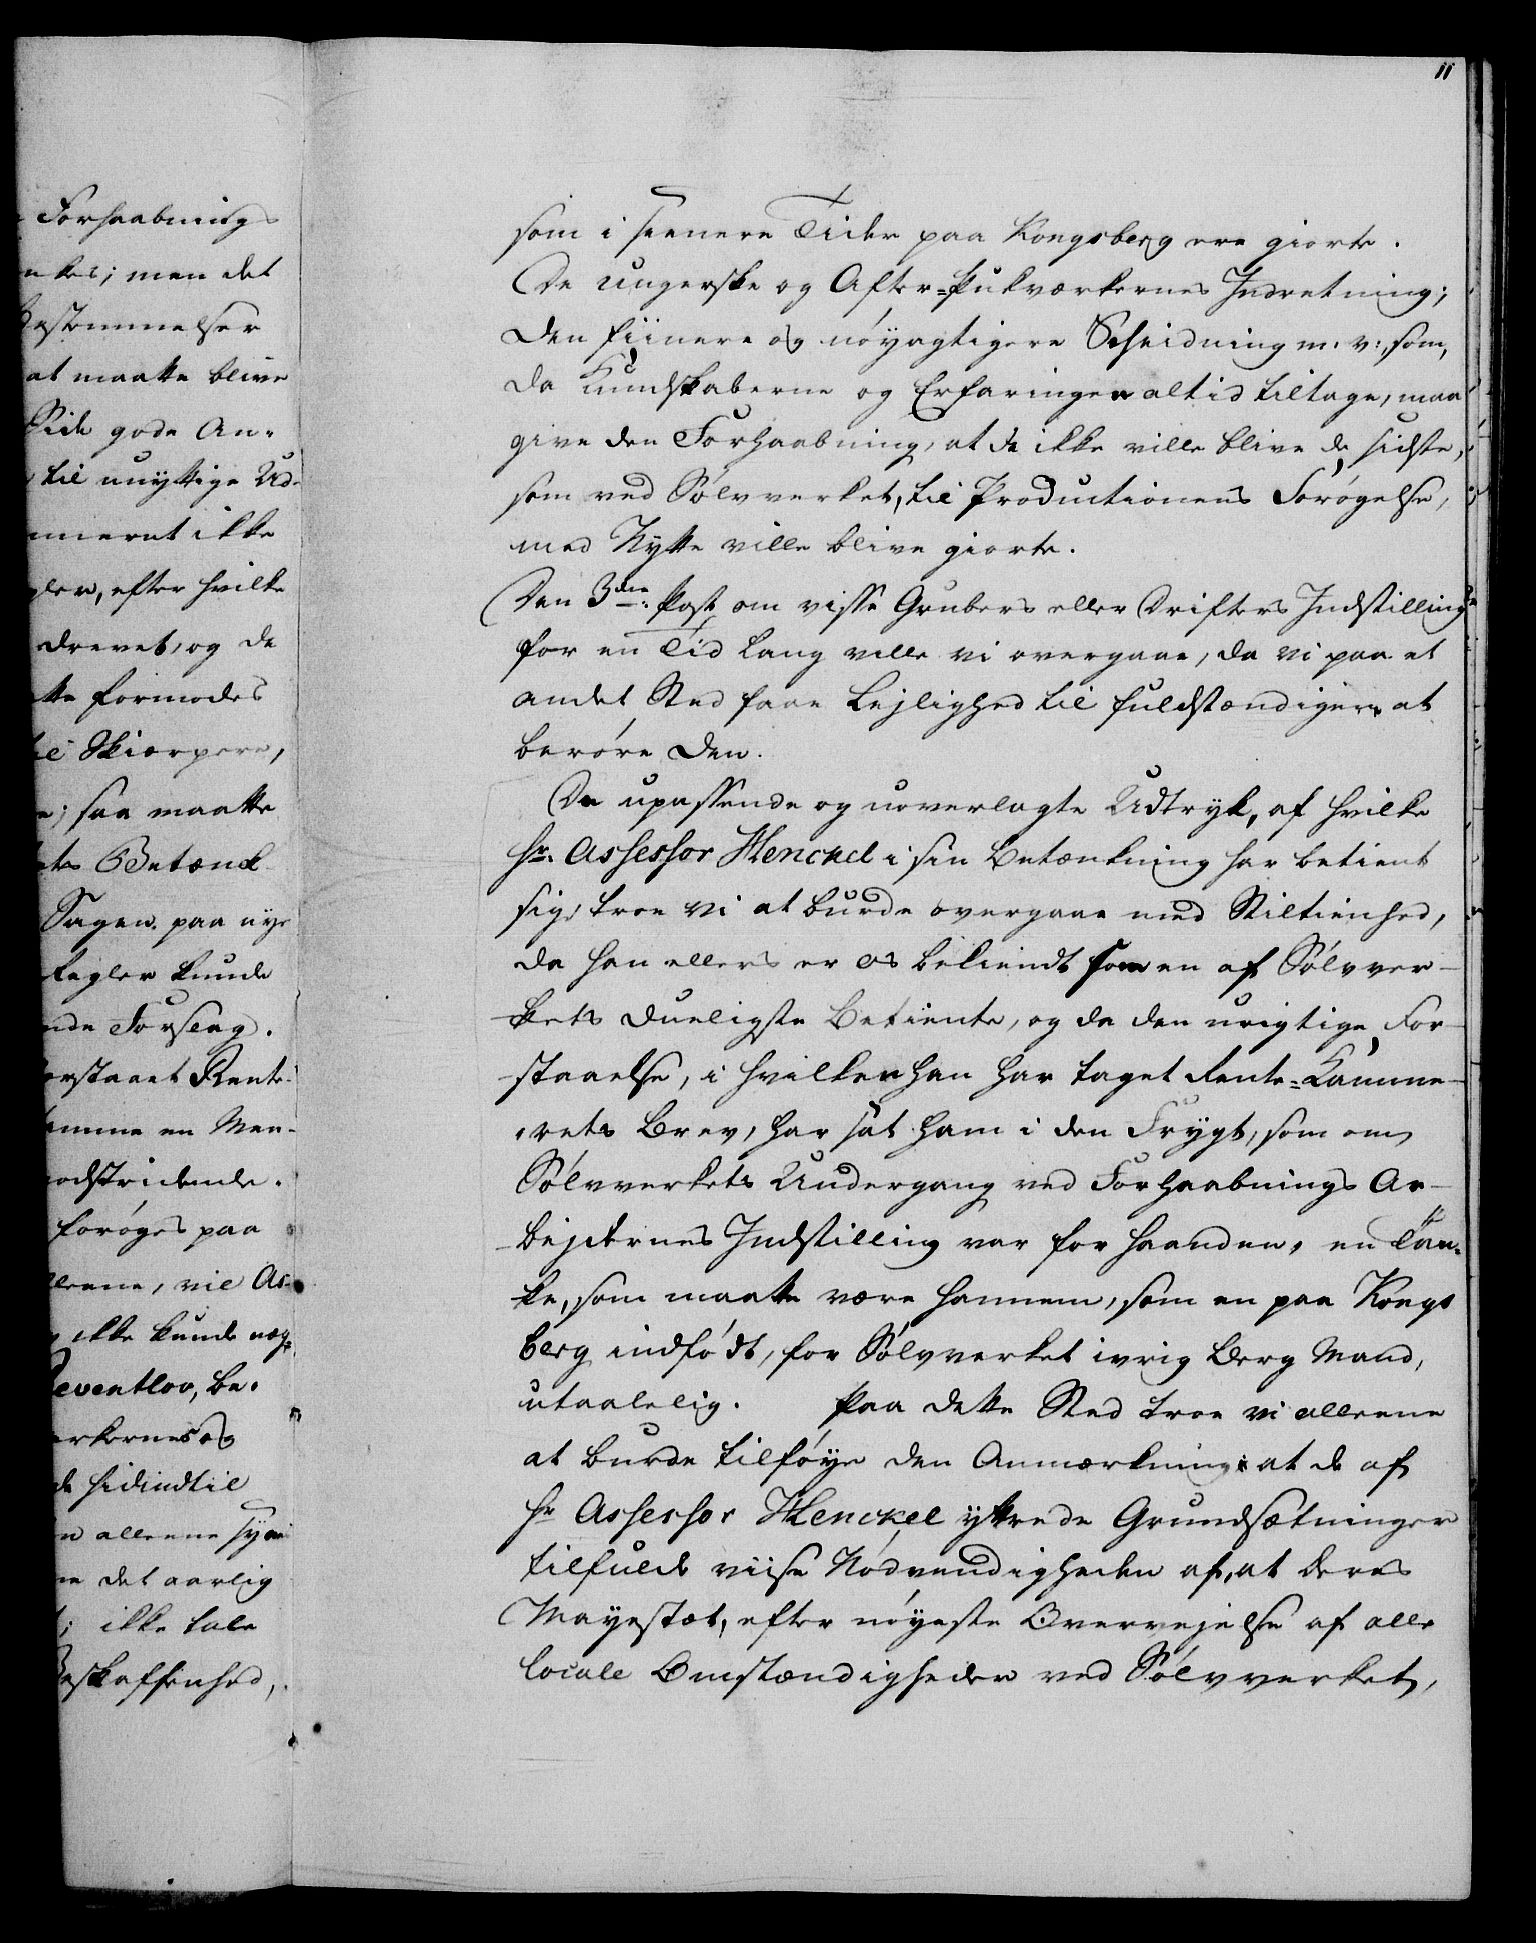 11
Forhaabnings
men det
stemmelser
at maatte blive
Side gode An-
til unyttige Ud-
meret ikke
gler, efter hvilke
drevet, og de
formodes
Skiærpere,
saa maatte
Betænk-
Sagen paa nye
Regler kunde
Forslag.
Rente-
en Men-
modstridende.
forøges paa
leene, vil As-
ikke kunde næg-
Reventlov, be-
erkernes og
hidindtil
alleene syn
det aarlig
ikke tale
Beskaffenhed,
som i seenere Tider paa Kongsberg ere giorte.
De ungerske og After-Pukværkernes Indretning;
den fiinere og nöyagtigere Scheidning m: v:, som,
da Kundskaberne og Erfaringen altid tiltage, maa
give den Forhaabning, at de ikke ville blive de sidste,
som ved Sölvverket, til Productionens Forögelse,
med Nytte ville blive giorte.
Den 3die Post om visse Grubers eller Drifters Indstilling
for en Tid lang ville vi overgaae, da vi paa et
andet Sted faae Lejlighed til fuldstændigere at
beröre den.
De upassende og uoverlagte Udtryk, af hvilke
Hr. Assessor Henckel i sin Betænkning har betient
sig, troe vi at burde overgaae med Stiltienhed,
da han ellers er os bekiendt som en af Sölvver-
kets dueligste Betiente, og da den urigtige For-
staaelse, i hvilken han har taget Rente-Kamme-
rets Brev, har sat ham i den Frygt, som om
Sölvverkets Undergang ved Forhaabnings Ar-
bejdernes Indstilling var for haanden, en Tan-
ke, som maatte være hannem, som en paa Kongs
berg indfödt, for Sölvverket ivrig Berg Mand,
utaalelig. Paa dette Sted troe vi alleene
at burde tilföye den Anmærkning: at de af
Hr Assessor Henckel yttrede Grundsætninger
tilfulde viise Nödvendigheden af, at Deres
Mayestæt, efter nöyeste Overvejelse af alle
locale Omstændigheder ved Sölvverket,